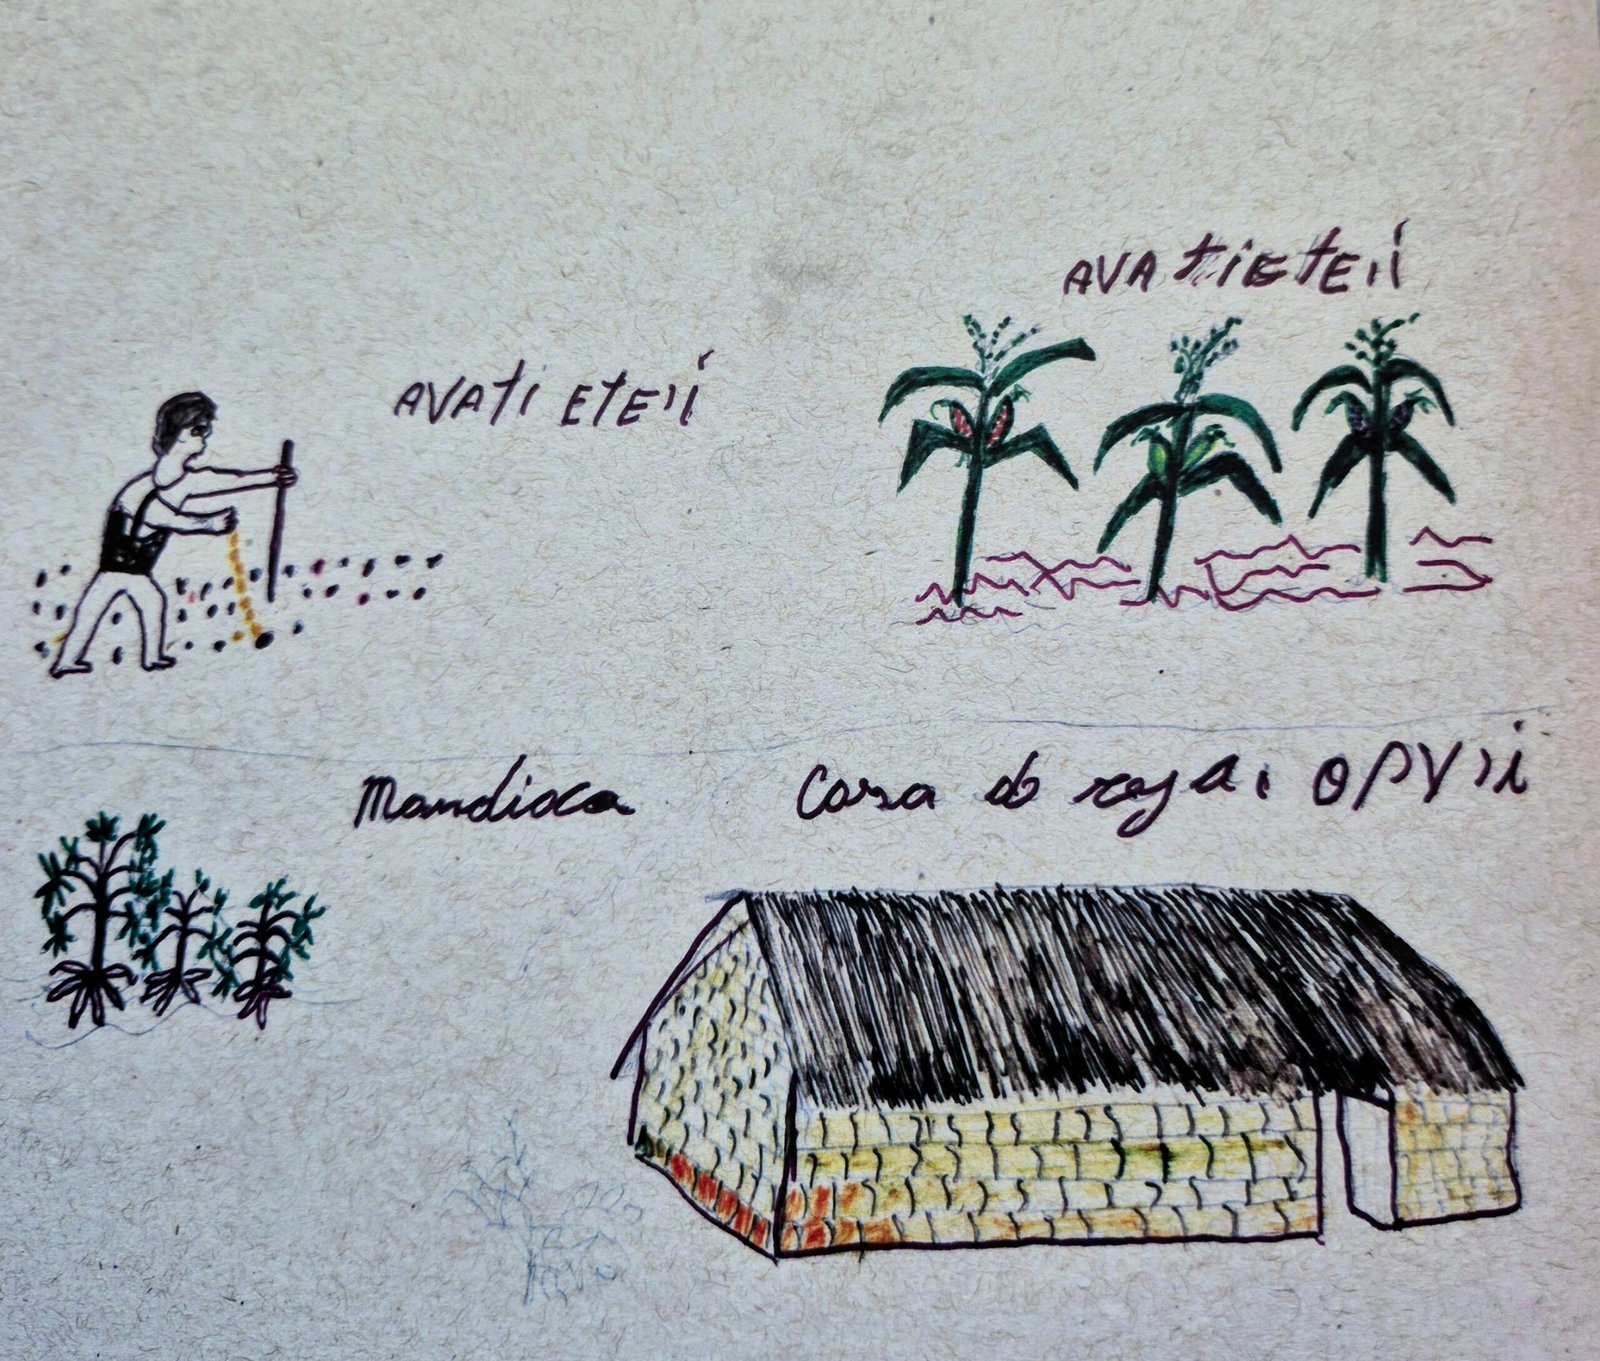 AVATI ETE'I
AVATIETE'I
Mandioca
Casa do reza. OPY'I